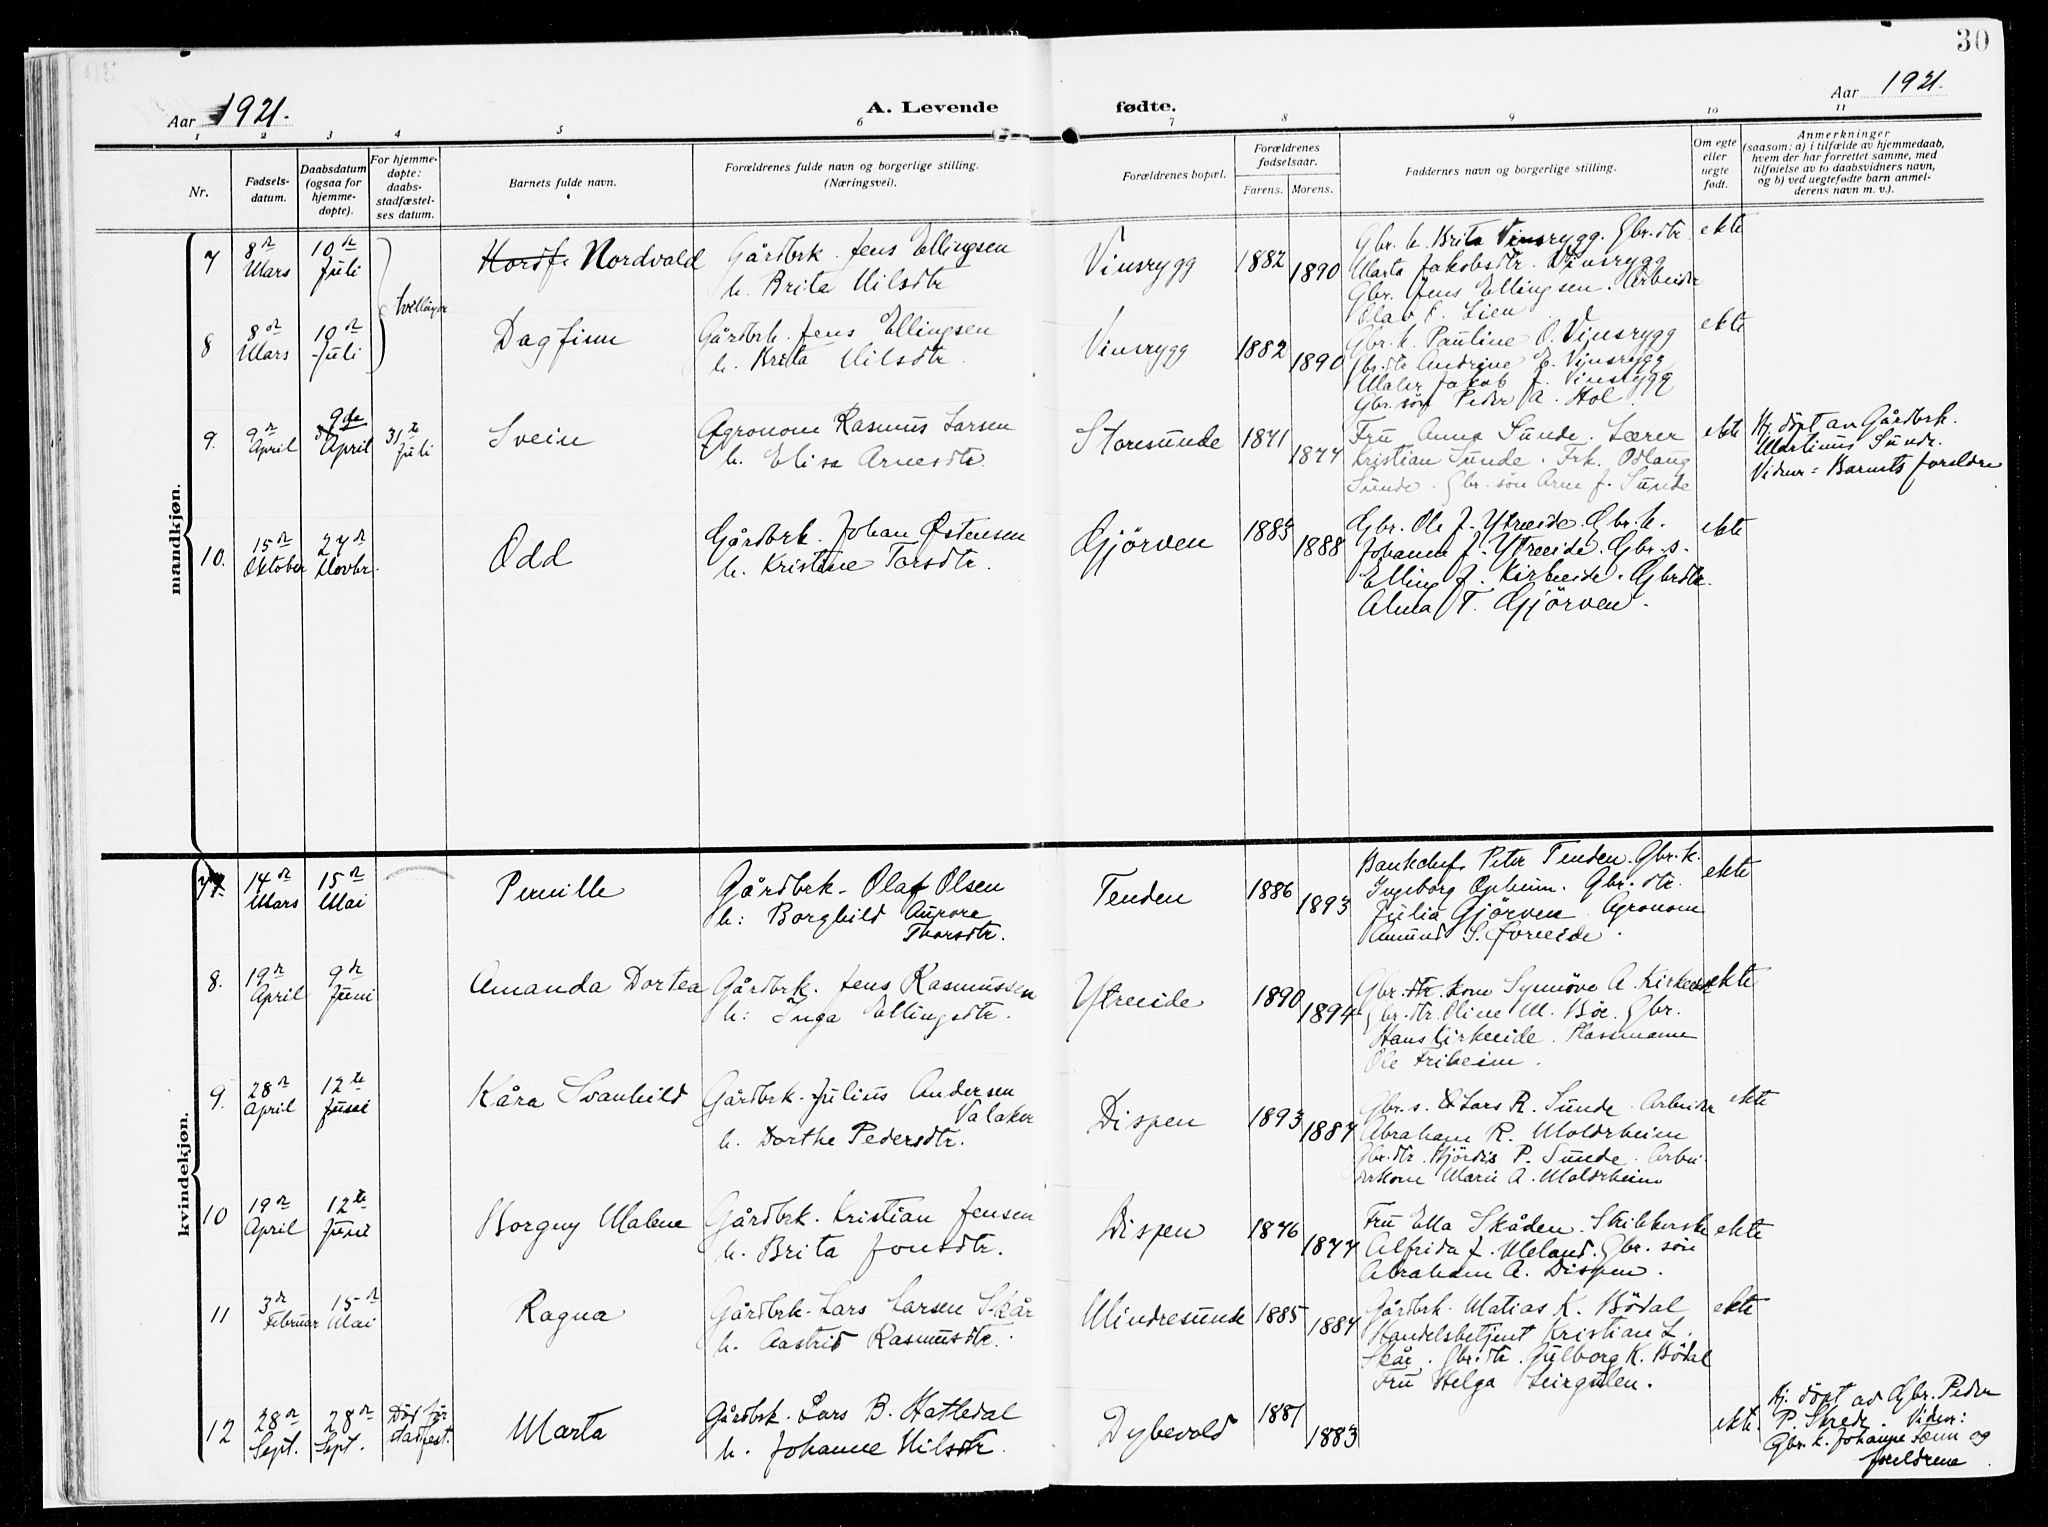 30
Aar 1921.
A. Levende fødte.
Aar 1921.
1 2 3 4 5 6 7 8 9 10 11
Nr.
Fødsels-
datum.
Daabsdatum
(ogsaa for
hjemme-
døpte).
For hjemme-
døpte:
daabs-
stadfæstel-
ses datum.
Barnets fulde navn.
Forældrenes fulde navn og borgerlige stilling.
(Næringsvei).
Forældrenes bopæl.
Forældrenes
fødselsaar.
Farens. Morens.
Faddernes navn og borgerlige stilling.
Om egte
eller
uegte
født.
Anmerkninger
(saasom: a) i tilfælde av hjemmedaab,
hvem der har forrettet samme, med
tilføielse av to daabsvidners navn,
og b) ved uegtefødte barn anmel-
derens navn m. v.).
mandkjøn.
7 8de Mars 10de Juli Tvillinger Nordvald
Gårdbrk. Jens Ellingsen
h. Brita Nilsdtr
Vinsrygg 1882 1890
Gbr. k. Brita Vinsrygg. Gbr. dtr
Marta Jakobsdtr. Vinsrygg
Gbr. Jens Ellingsen. Arbeider
Olav Lien
ekte
8 8de Mars 10de Juli Dagfinn
Gårdbrk. Jens Ellingsen
h. Brita Nilsdtr.
Vinsrygg 1882 1890
Gbr. k. Pauline O. Vinsrygg
Gbr. dtr Andrine E. Vinsrygg
Maler Jakob J. Vinsrygg
Gbr. søn Peder A. Hol
ekte
9. 9de April 9de April 31te Juli Svein
Agronom Rasmus Larsen
h. Elisa Arnesdtr.
Storesunde 1871 1877
Fru Anna Sunde. Lærer
Kristian Sunde. Frk. Odlaug
Sunde. Gbr. søn Arne J. Sunde
ekte
Hj. döpt av Gårdbrk.
Martinus Sunde.
Vidner = Barnets foreldre
10. 15de Oktober 27de Novbr. Odd
Gårdbrk. Johan Østensen
h. Kristine Torsdtr.
Gjörven 1883 1888
Gbr. Ole J. Ytreeide. Gbr. k.
Johanna J. Ytreeide. Gbr. s.
Elling J. Kirkeeide. Gbrdtr.
Alma T. Gjörven.
ekte
kvindekjøn.
7. 14de Mars 15de Mai Pernille
Gårdbrk. Olaf Olsen
h: Borghild Aurora
Thorsdtr.
Tenden 1886 1893
Bankchef Peter Tenden. Gbr. k.
Ingeborg Opheim. Gbr. dtr.
Julia Gjörven. Agronom
Amund S.
ekte
8. 19de April 9de Juni Amanda Dortea
Gårdbrk. Jens Rasmussen
h: Inga Ellingsdtr.
Ytreeide 1890 1894
Gbr. kone Synnöve A. Kirkeeide
Gbr. dtr. Oline M. Böe. Gbr.
Hans Kirkeeide. Plassmann
Ole Friheim.
ekte
9. 28de April 12te Juni Kåra Svanhild
Gårdbrk. Julius Andersen
Valaker
h. Dorthe Pedersdtr.
Dispen 1893 1887
Gbr. s. Lars R. Sunde. Arbeider
Abraham R. Moldrheim
Gbr. dtr. Hjördis P. Sunde. Arbei-
derkone Marie A. Moldrheim
ekte
10 19de April 12te Juni Borguy Malene
Gårdbrk. Kristian Jensen
h. Brita Jonsdtr.
Dispen 1876 1877
Fru Ella Skåden.
Alfrida J. Meland. Gbr. søn
Abraham A. Dispen.
ekte
11 3de Februar 15de Mai Ragna
Gårdbrk. Lars Larsen Skår
h. Aastrid Rasmusdtr.
Mindresunde 1885 1887
Gårdbrk. Matias K. Bödal
Handelsbetjent Kristian L.
Skår. Gbr. dtr. Gulborg K. Bödal
Fru Helga Leirgulen.
ekte
12 28de Sept. 28de Sept. Död för stadfest. Marta
Gårdbrk. Lars B. Hatledal
h. Johanne Nilsdtr.
Dybevold 1881 1883
ekte.
Hj. döpt av Gbr. Peder
P. Skrede. Vidner:
Gbr. k. Johanne og
foreldrene